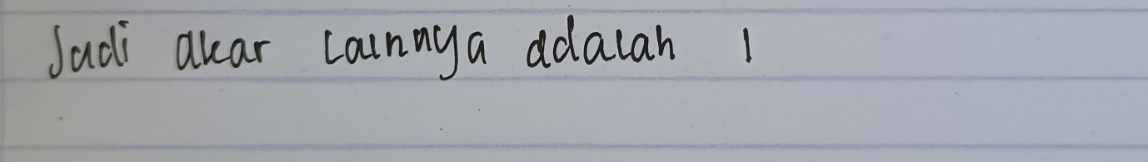 Jadi akar lainnya adalah 1